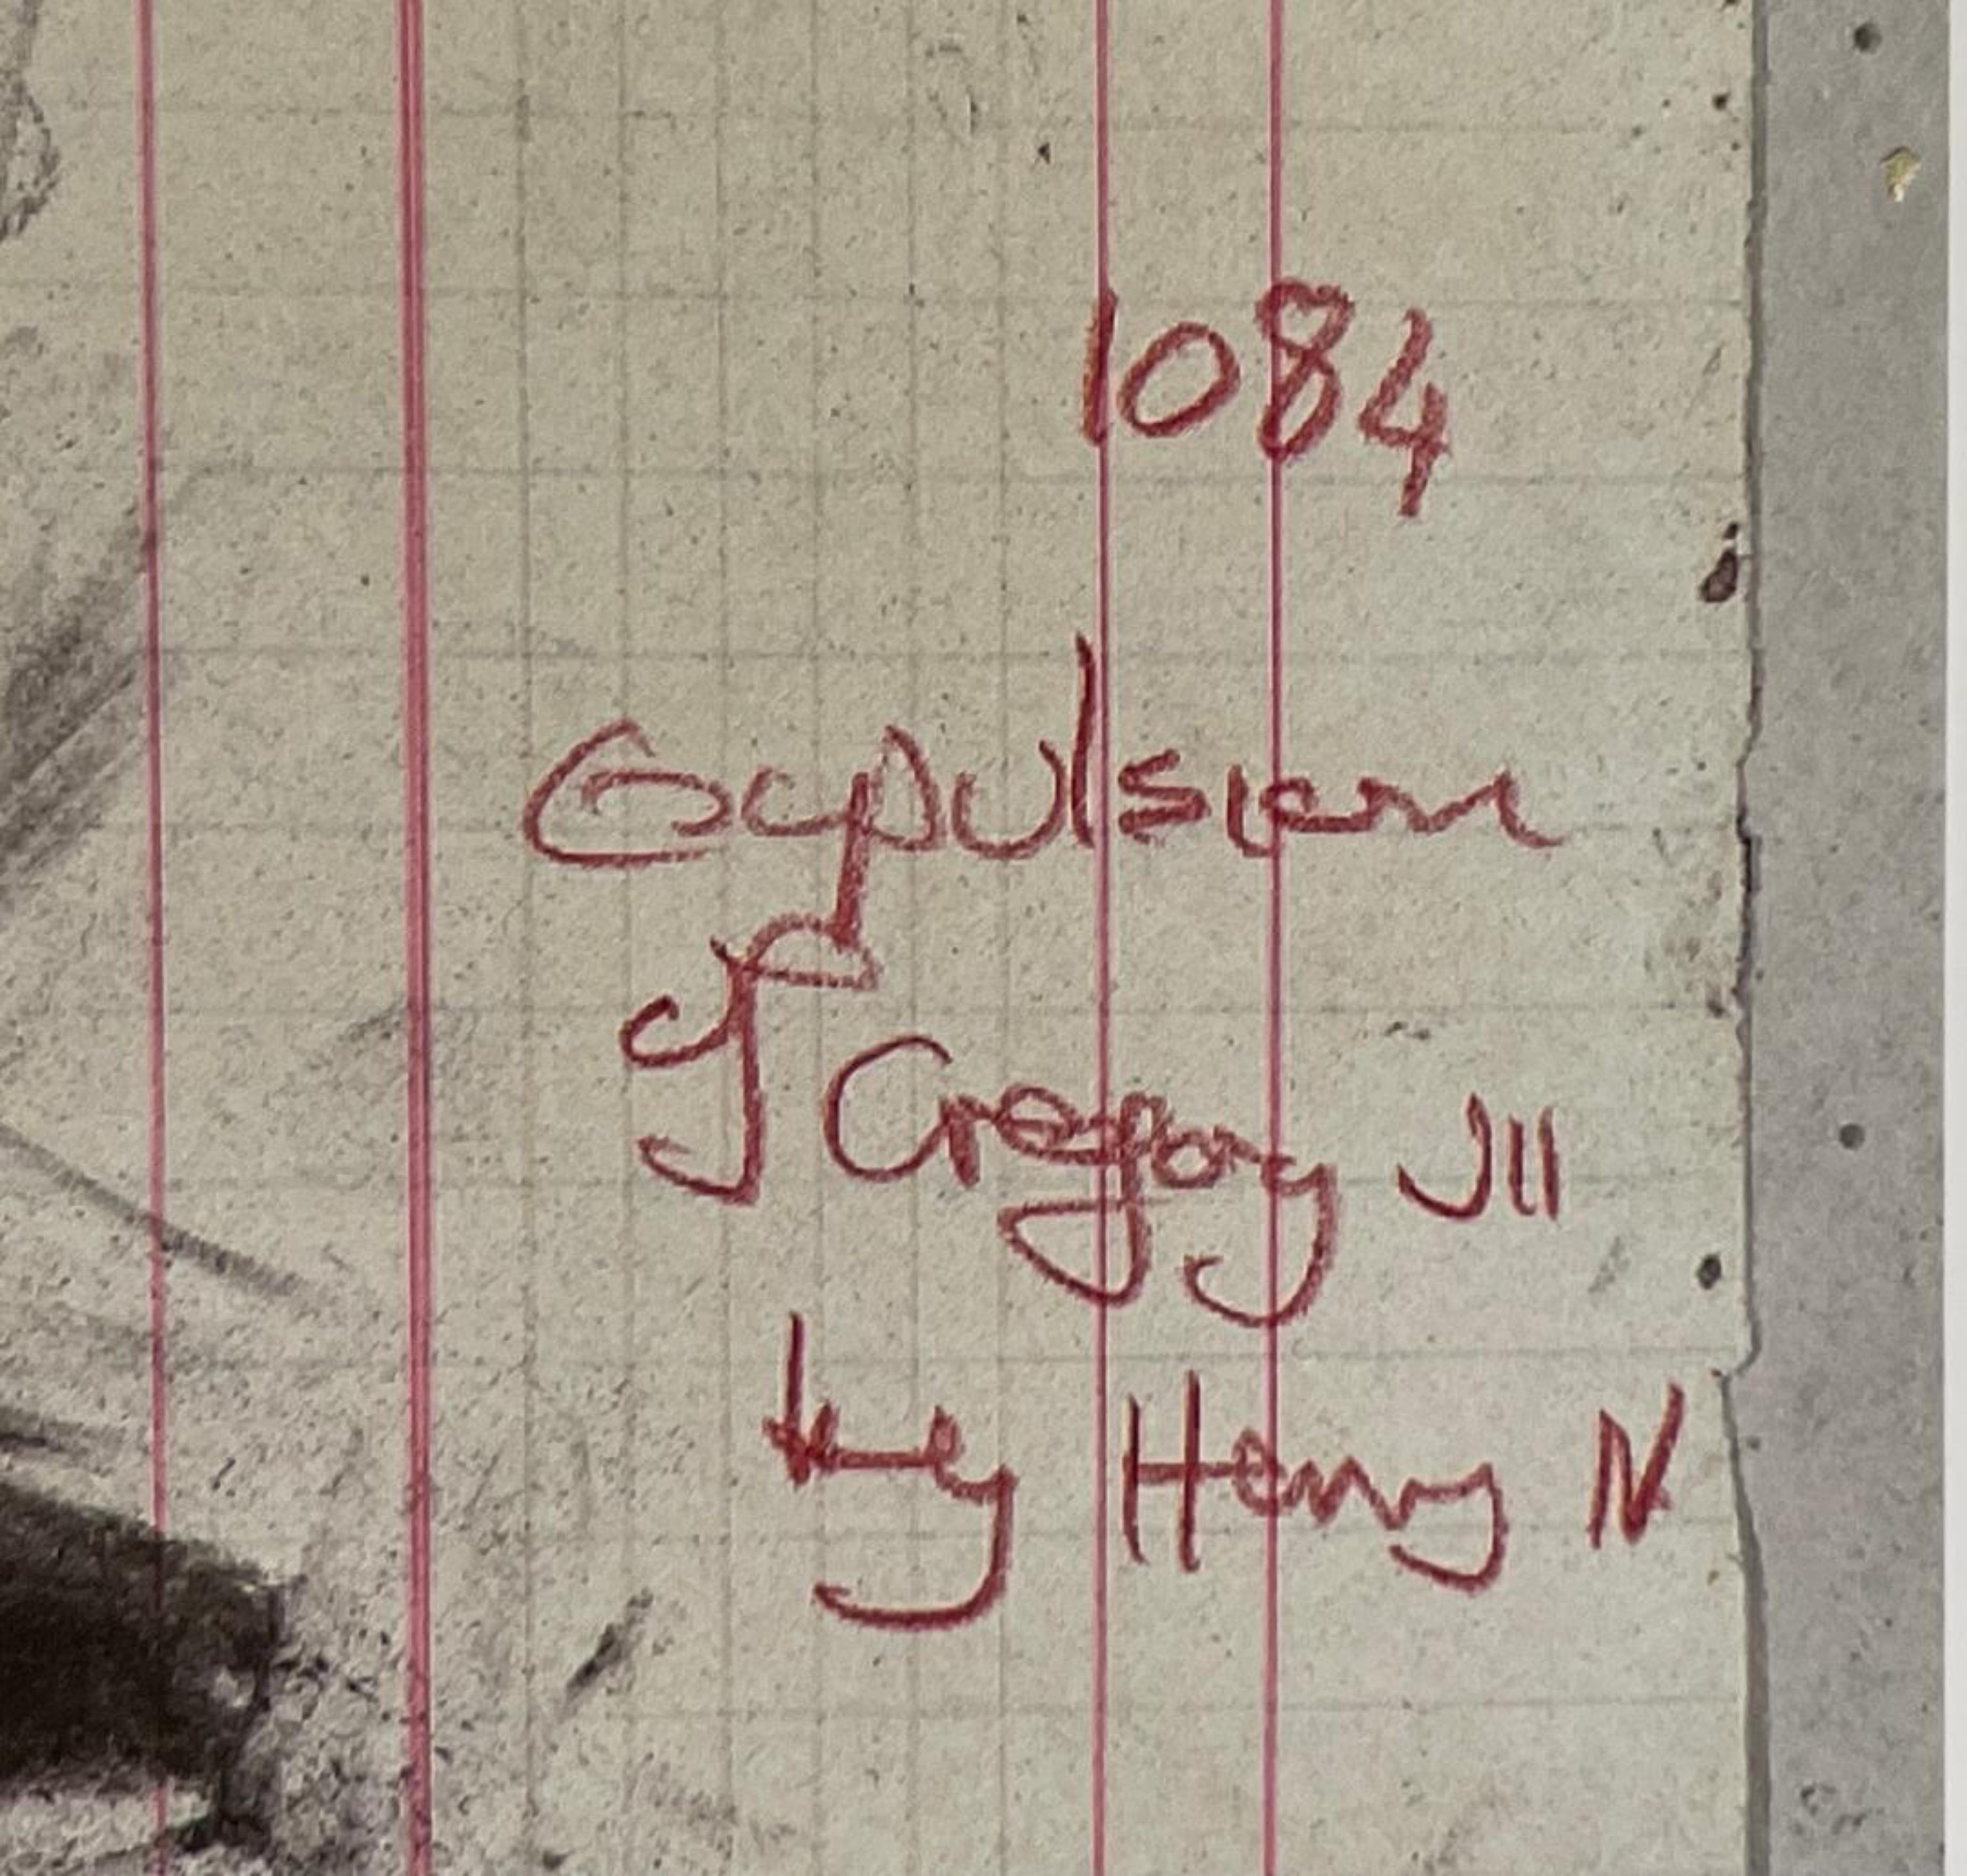 1084
Expulsion
of Gregory VII
by Henry IV